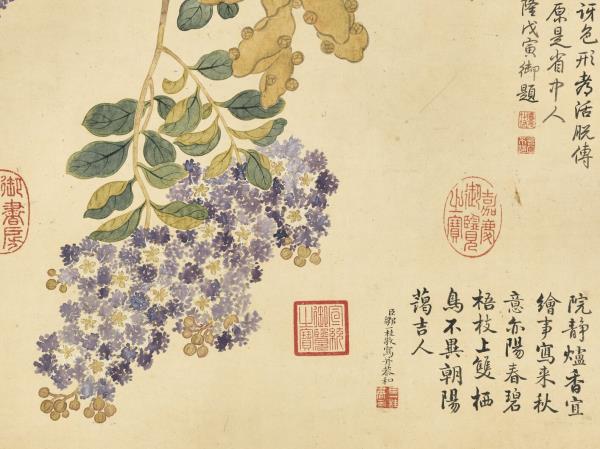 訝色形考活脫傳
原是省中人
隆戊寅御題
嘉慶
御覽
之寶
院靜爐香宜
繪事寫來秋
意亦陽春碧
梧枝上雙栖
鳥不異朝陽
藹吉人
臣鄒一桂敬寫并恭和
宣統
御覽
之寶
御書房